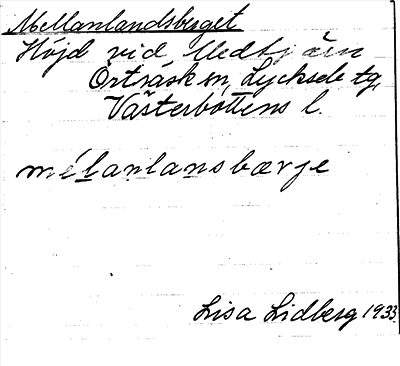 Mellanlandsberget
Höjd vid Vedtjärn
Örträsk sn, Lycksele tg,
Västerbottens l.
mélanlansbærje
Lisa Lidberg 1933